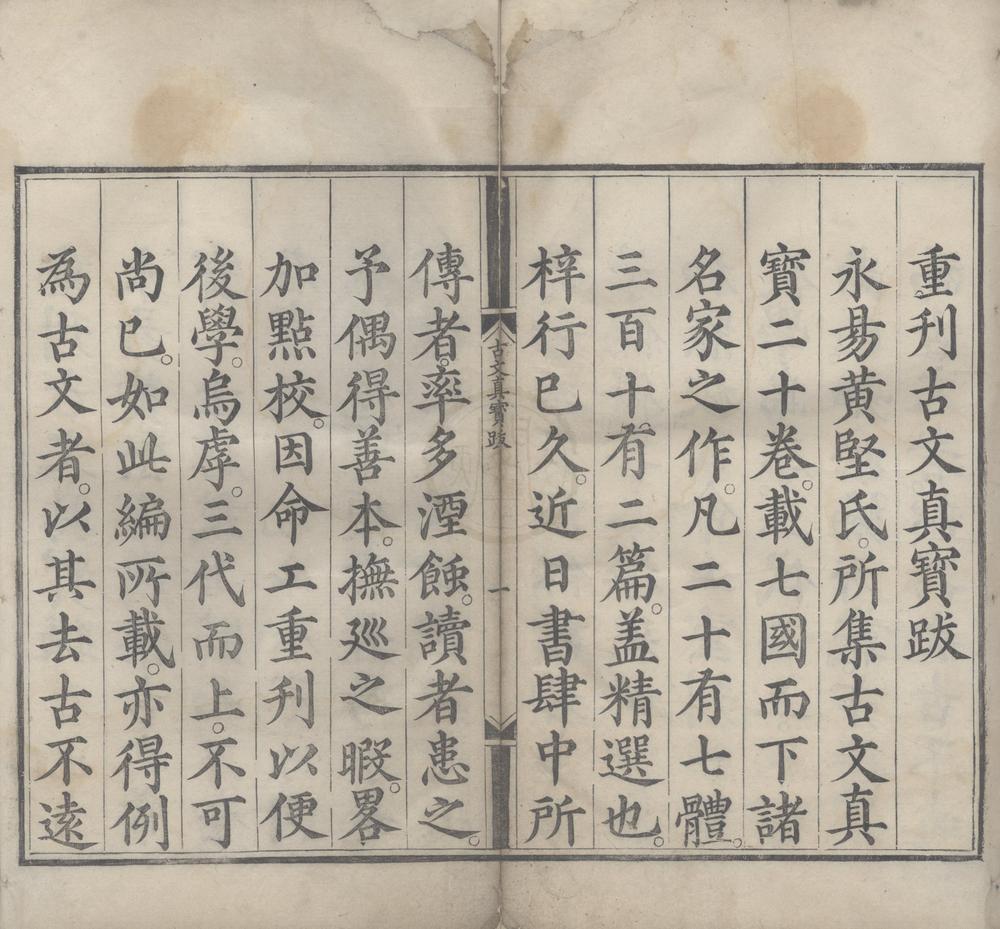 重刊古文真寳跋
永昜黄堅氏。所集古文真
寳二十卷。載七國而下諸
名家之作。凡二十有七體。
三百十。有二篇。盖精選也。
梓行巳久。近日書肆中所
古文真寳跋 一
傳者。率多湮蝕。讀者患之。
予偶得善本。撫廵之暇。畧
加點校。因命工重刊以便
後學。烏虖。三代而上。不可
尚巳。如此編所載。亦得例
為古文者。以其去古不遠